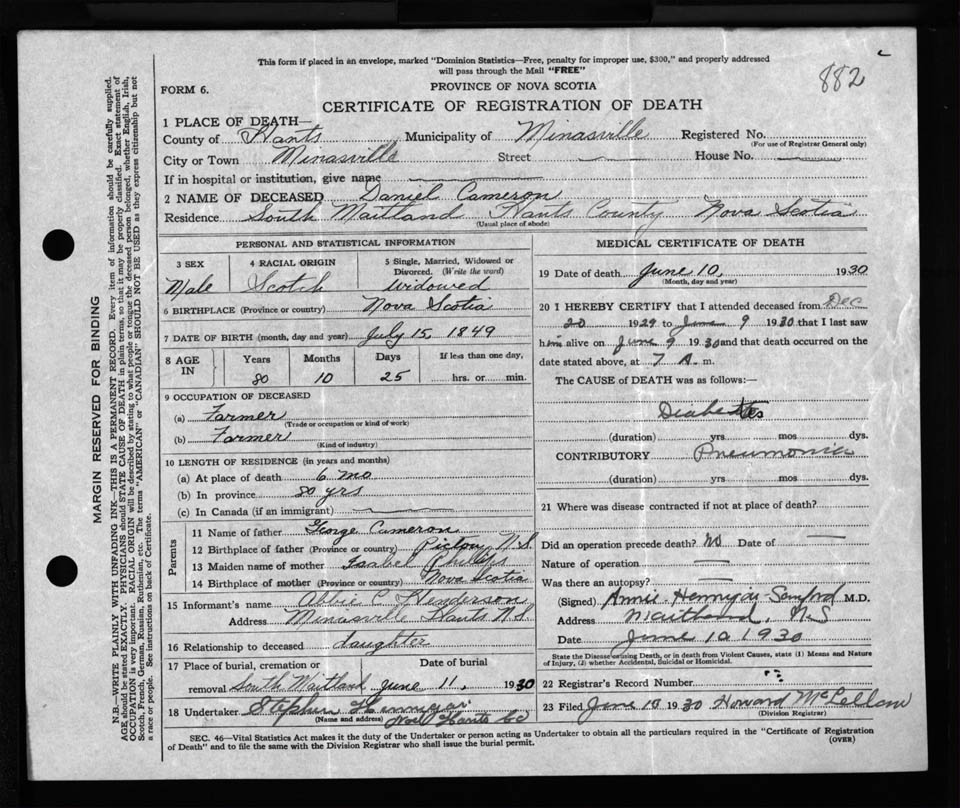 This form if placed in an envelope, marked "Dominion Statistics—Free, penalty for improper use, $300," and properly addressed
will pass through the Mail "FREE"
882
FORM 6.
PROVINCE OF NOVA SCOTIA
CERTIFICATE OF REGISTRATION OF DEATH
1 PLACE OF DEATH—
County of Hants Municipality of Minasville Registered No.
(For use of Registrar General only)
City or Town Minasville Street House No.
If in hospital or institution, give name
2 NAME OF DECEASED Daniel Cameron
Residence South Maitland Hants County Nova Scotia
(Usual place of abode)
PERSONAL AND STATISTICAL INFORMATION
3 SEX 4 RACIAL ORIGIN 5 Single, Married, Widowed or Divorced. (Write the word)
Male Scotch Widowed
6 BIRTHPLACE (Province or country) Nova Scotia
7 DATE OF BIRTH (month, day and year) July 15, 1849
8 AGE IN Years Months Days If less than one day,
80 10 25 hrs. or min.
9 OCCUPATION OF DECEASED
(a) Farmer
(Trade or occupation or kind of work)
(b) Farmer
(Kind of industry)
10 LENGTH OF RESIDENCE (in years and months)
(a) At place of death 6 mo
(b) In province 80 yrs
(c) In Canada (if an immigrant)
Parents
11 Name of father George Cameron
12 Birthplace of father (Province or country) Pictou N.S.
13 Maiden name of mother Isabel Phillips
14 Birthplace of mother (Province or country) Nova Scotia
15 Informant's name Abbie C. Henderson
Address Minasville Hants N.S
16 Relationship to deceased daughter
17 Place of burial, cremation or Date of burial
removal South Maitland June 11, 1930
18 Undertaker Stephen Hennigar
(Name and address) Noel Hants Co
MEDICAL CERTIFICATE OF DEATH
19 Date of death June 10, 1930
(Month, day and year)
20 I HEREBY CERTIFY that I attended deceased from Dec
20 1929 to June 9 1930 that I last saw
him alive on June 9 1930 and that death occurred on the
date stated above, at 7 A. m.
The CAUSE OF DEATH was as follows:—
Diabetes
(duration) yrs mos dys.
CONTRIBUTORY Pneumonia
(duration) yrs. mos. dys.
21 Where was disease contracted if not at place of death?
Did an operation precede death? No Date of
Nature of operation
Was there an autopsy?
(Signed) Annie Hennigar Sanford M.D.
Address Maitland, N.S
Date June 10 1930
State the Disease causing Death, or in death from Violent Causes, state (1) Means and Nature
of Injury, (2) whether Accidental, Suicidal or Homicidal.
22 Registrar's Record Number
23 Filed June 10 1930 Howard McLellan
(Division Registrar)
SEC. 46—Vital Statistics Act makes it the duty of the Undertaker or person acting as Undertaker to obtain all the particulars required in the "Certificate of Registration
of Death" and to file the same with the Division Registrar who shall issue the burial permit.
(OVER)
MARGIN RESERVED FOR BINDING
N.B.—WRITE PLAINLY WITH UNFADING INK—THIS IS A PERMANENT RECORD. Every item of information should be carefully supplied.
AGE should be stated EXACTLY. PHYSICIANS should STATE CAUSE OF DEATH in plain terms, so that it may be properly classified. Exact statement of
OCCUPATION is very important. RACIAL ORIGIN will be described by stating to what people or tongue the deceased person belonged, whether English, Irish,
Scotch, French, German, Russian, Ruthenian, etc. The terms "AMERICAN" or "CANADIAN" SHOULD NOT BE USED as they express citizenship but not
a race or people. See instructions on back of Certificate.